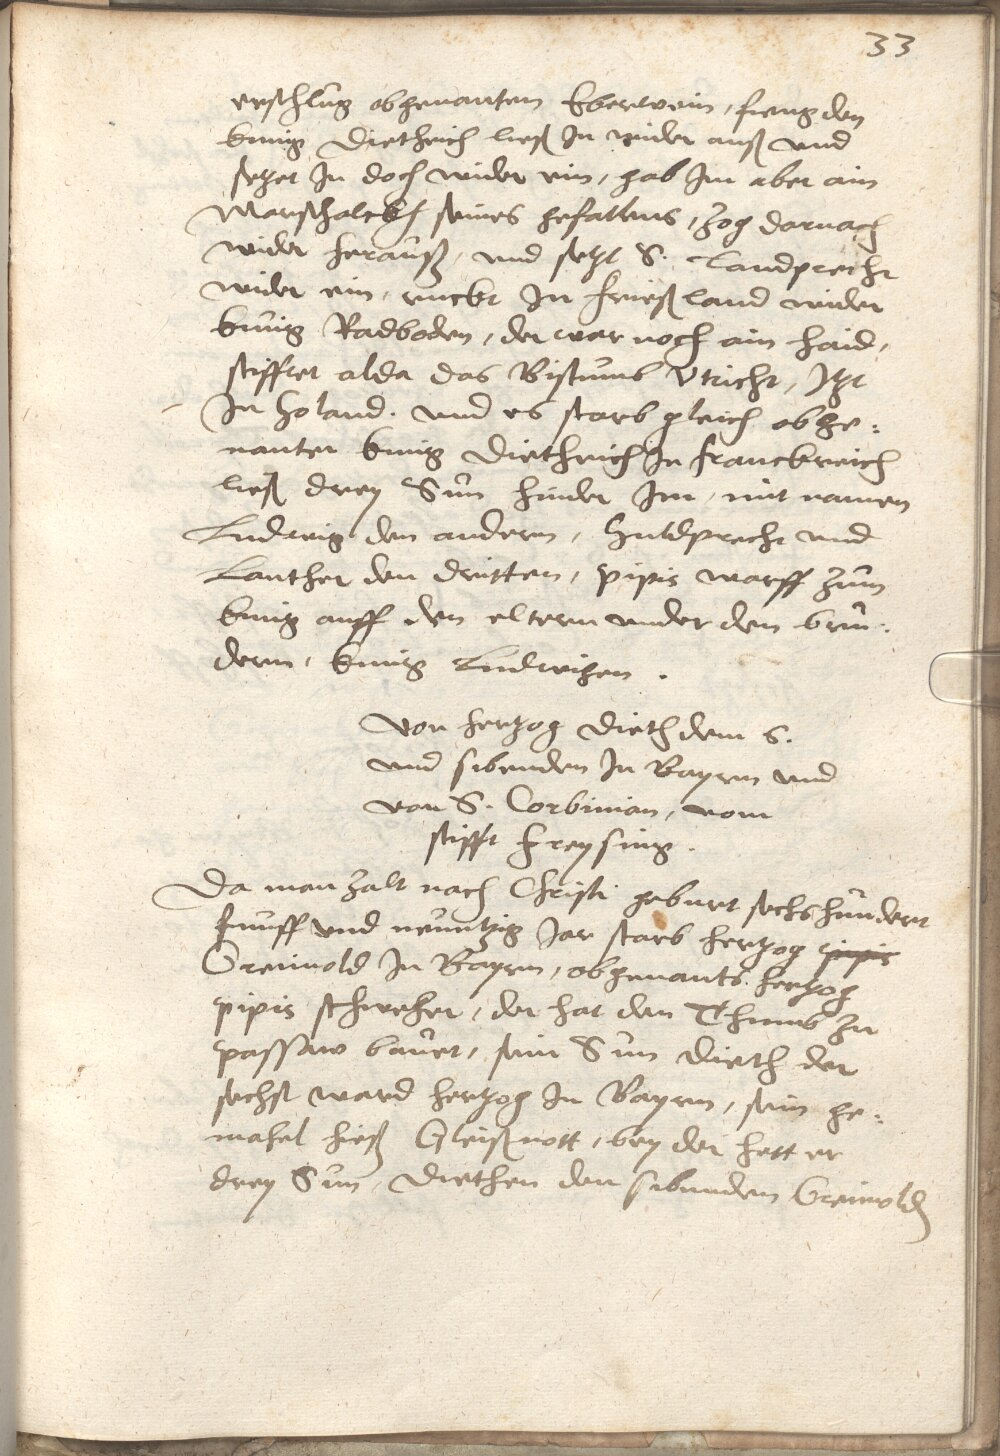 33
erschlug obgenanten Eberwein, fieng den
kunig Dietherich ließ In wider auß vnd
setzet In doch wider ein, gab Im aber ain
Marschalckh seines gefallens, zog darnach
wider herauß, vnd setzt S. Landprecht
wider ein, ruckt In frießland wider
kunig Radboden, der war noch ain haid,
stifftet alda das Bistumb Vtricht, Itzt
In Holand. vnd es starb gleich obge:
nanter kunig Dietherich In franckreich
ließ drey Sün hinder Im, mit namen
Ludwig den andern, Huldprecht vnd
Lauther den dritten, pipis warff zum
kunig auff den eltern vnder den brü:
dern, kunig Ludwigen.
Von hertzog Dieth dem 6.
vnd sibenden In Bayrn vnd
von S. Corbinian, vom
stifft Freysing.
Da man zalt nach Christi geburt sechshundert
funff vnd neuntzig Jar starb hertzog pipis
Greimold In Bayrn, obgenants hertzog
pipis schweher, der hat den Thumb zu
passaw bauet, sein Sun Dieth der
sechst ward hertzog In Bayrn, sein ge:
mahel hieß Gleißnott, bey der hett er
drey Sün, Diethen den sibenden Greimold